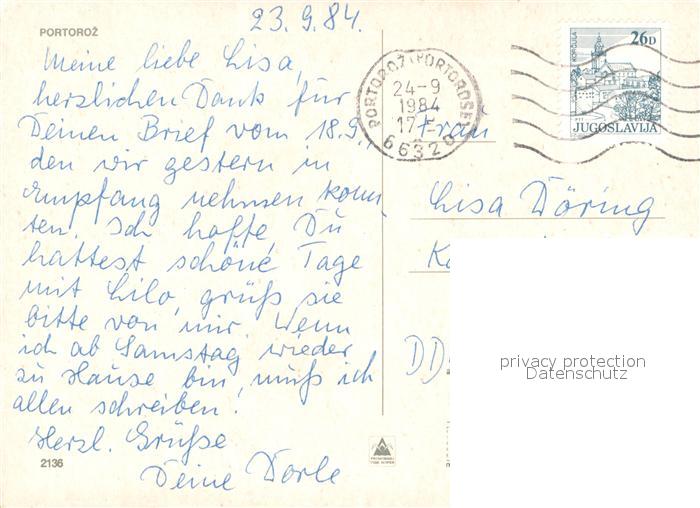 23.9.84.
PORTOROŽ
Meine liebe Lisa,
herzlichen Dank für
Deinen Brief vom 18.9.,
den wir gestern in
Empfang nehmen konn-
ten. Ich hoffe, Du
hattest schöne Tage
mit Lilo, grüß sie
bitte von mir. Wenn
ich ab Samstag wieder
zu Hause bin, muß ich
allen schreiben.
Herzl. Grüße
Deine Dorle
2136
PORTOROŽ (PORTOROSE)
24-9
1984
17
66320
26D
PTT
JUGOSLAVIJA
Frau
Lisa Döring
DD
privacy protection
Datenschutz